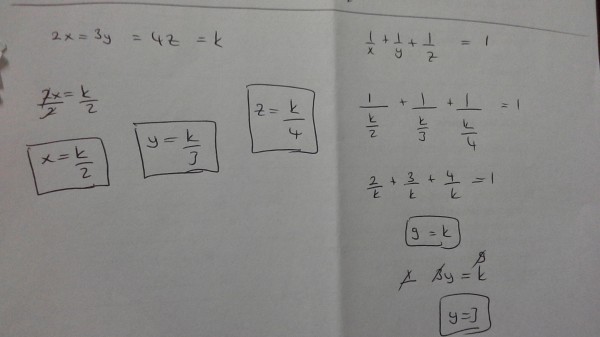 2x = 3y = 4z = k
2x/2 = k/2
x = k/2
y = k/3
z = k/4
1/x + 1/y + 1/z = 1
1/(k/2) + 1/(k/3) + 1/(k/4) = 1
2/k + 3/k + 4/k = 1
9 = k
3y = k
y = 3